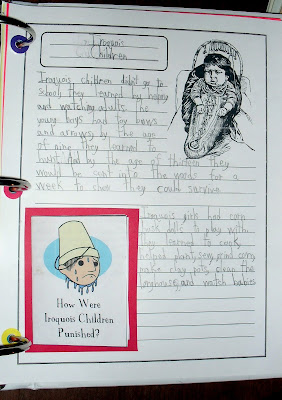 Iroquois
Children
Iroquois children didn't go to
school, they learned by happy
and watching adults. The
young boys had toy bows
and arrows, by the age
of nine they learned to
hunt. And by the age of thirteen they
would be sent into the woods for a
week to show they could survive.
Iroquois girls had corn
husk dolls to play with.
They learned to cook,
helped plant, sew, grind corn,
make clay pots, clean the
longhouse, and watch babies
How Were
Iroquois Children
Punished?